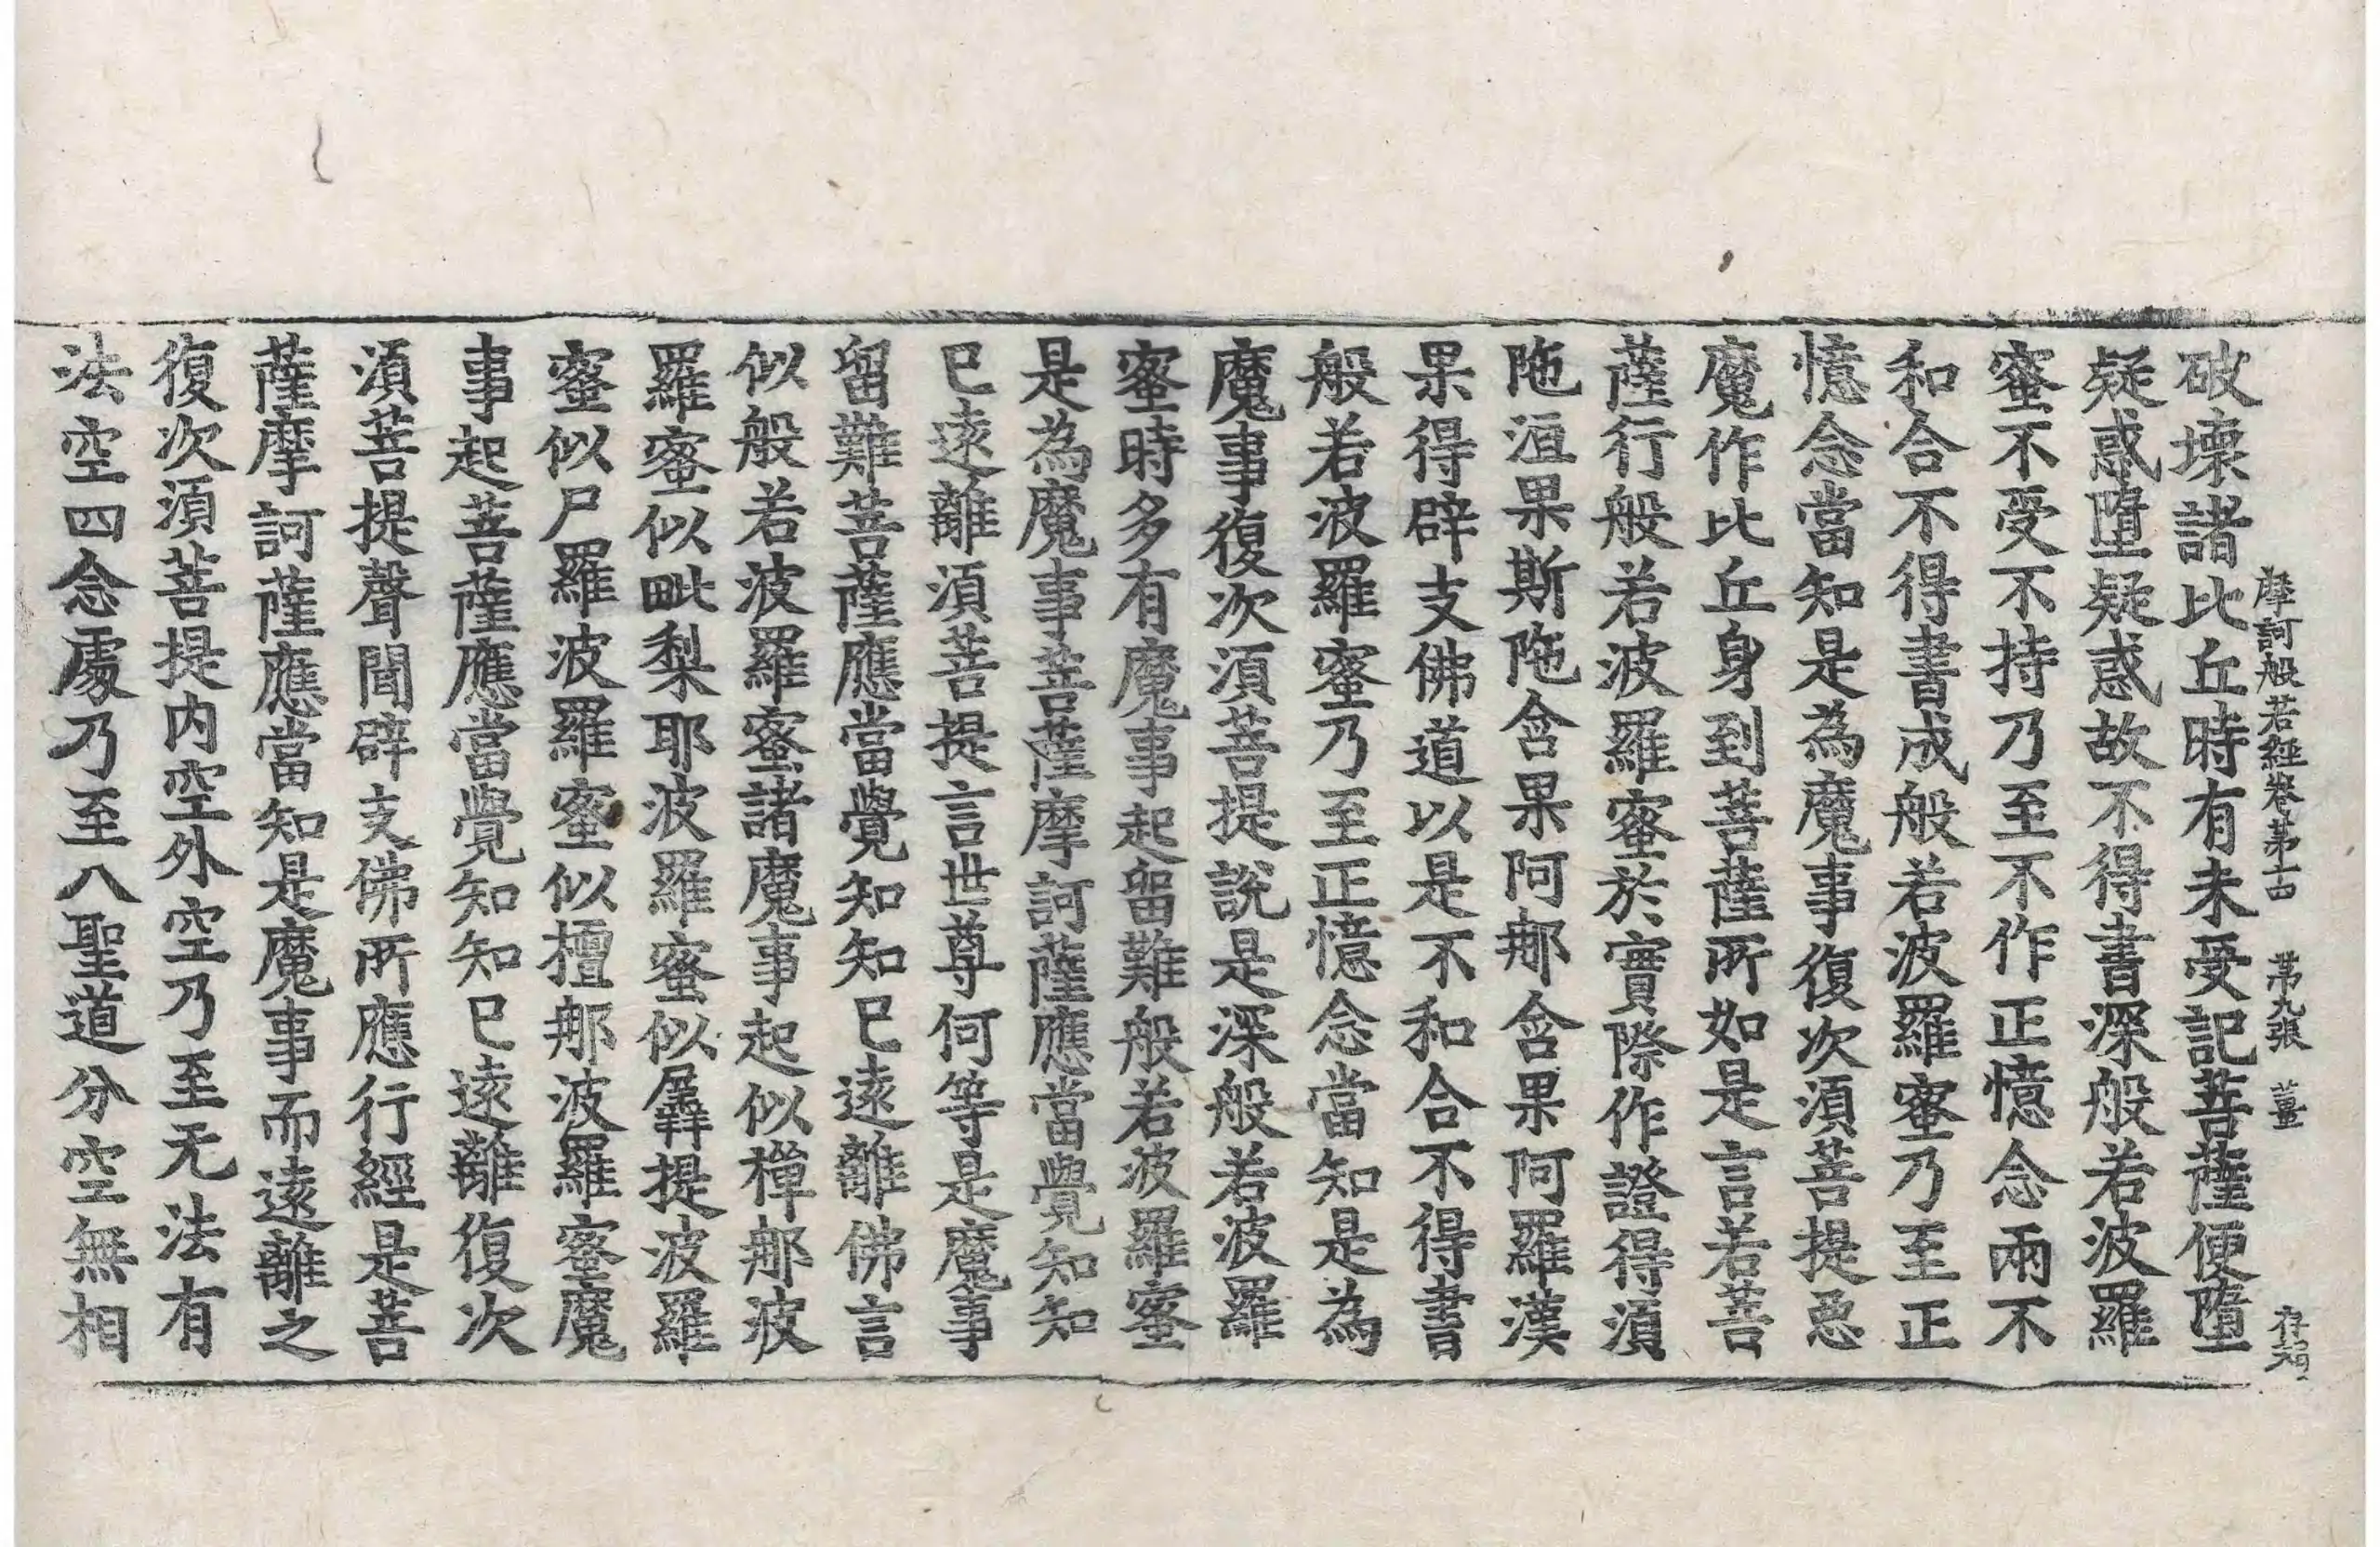 摩訶般若經卷第十四 第九張 薑
破壞諸比丘時有未受記菩薩便墮
疑惑墮疑惑故不得書深般若波羅
蜜不受不持乃至不作正憶念兩不
和合不得書成般若波羅蜜乃至正
憶念當知是為魔事復次須菩提惡
魔作比丘身到菩薩所如是言若菩
薩行般若波羅蜜於實際作證得須
陁洹果斯陁含果阿那含果阿羅漢
果得辟支佛道以是不和合不得書
般若波羅蜜乃至正憶念當知是為
魔事復次須菩提說是深般若波羅
蜜時多有魔事起留難般若波羅蜜
是為魔事菩薩摩訶薩應當覺知知
已遠離須菩提言世尊何等是魔事
留難菩薩應當覺知知已遠離佛言
似般若波羅蜜諸魔事起似禪那波
羅蜜似毗梨耶波羅蜜似羼提波羅
蜜似尸羅波羅蜜似檀那波羅蜜魔
事起菩薩應當覺知知已遠離復次
須菩提聲聞辟支佛所應行經是菩
薩摩訶薩應當知是魔事而遠離之
復次須菩提內空外空乃至无法有
法空四念處乃至八聖道分空無相